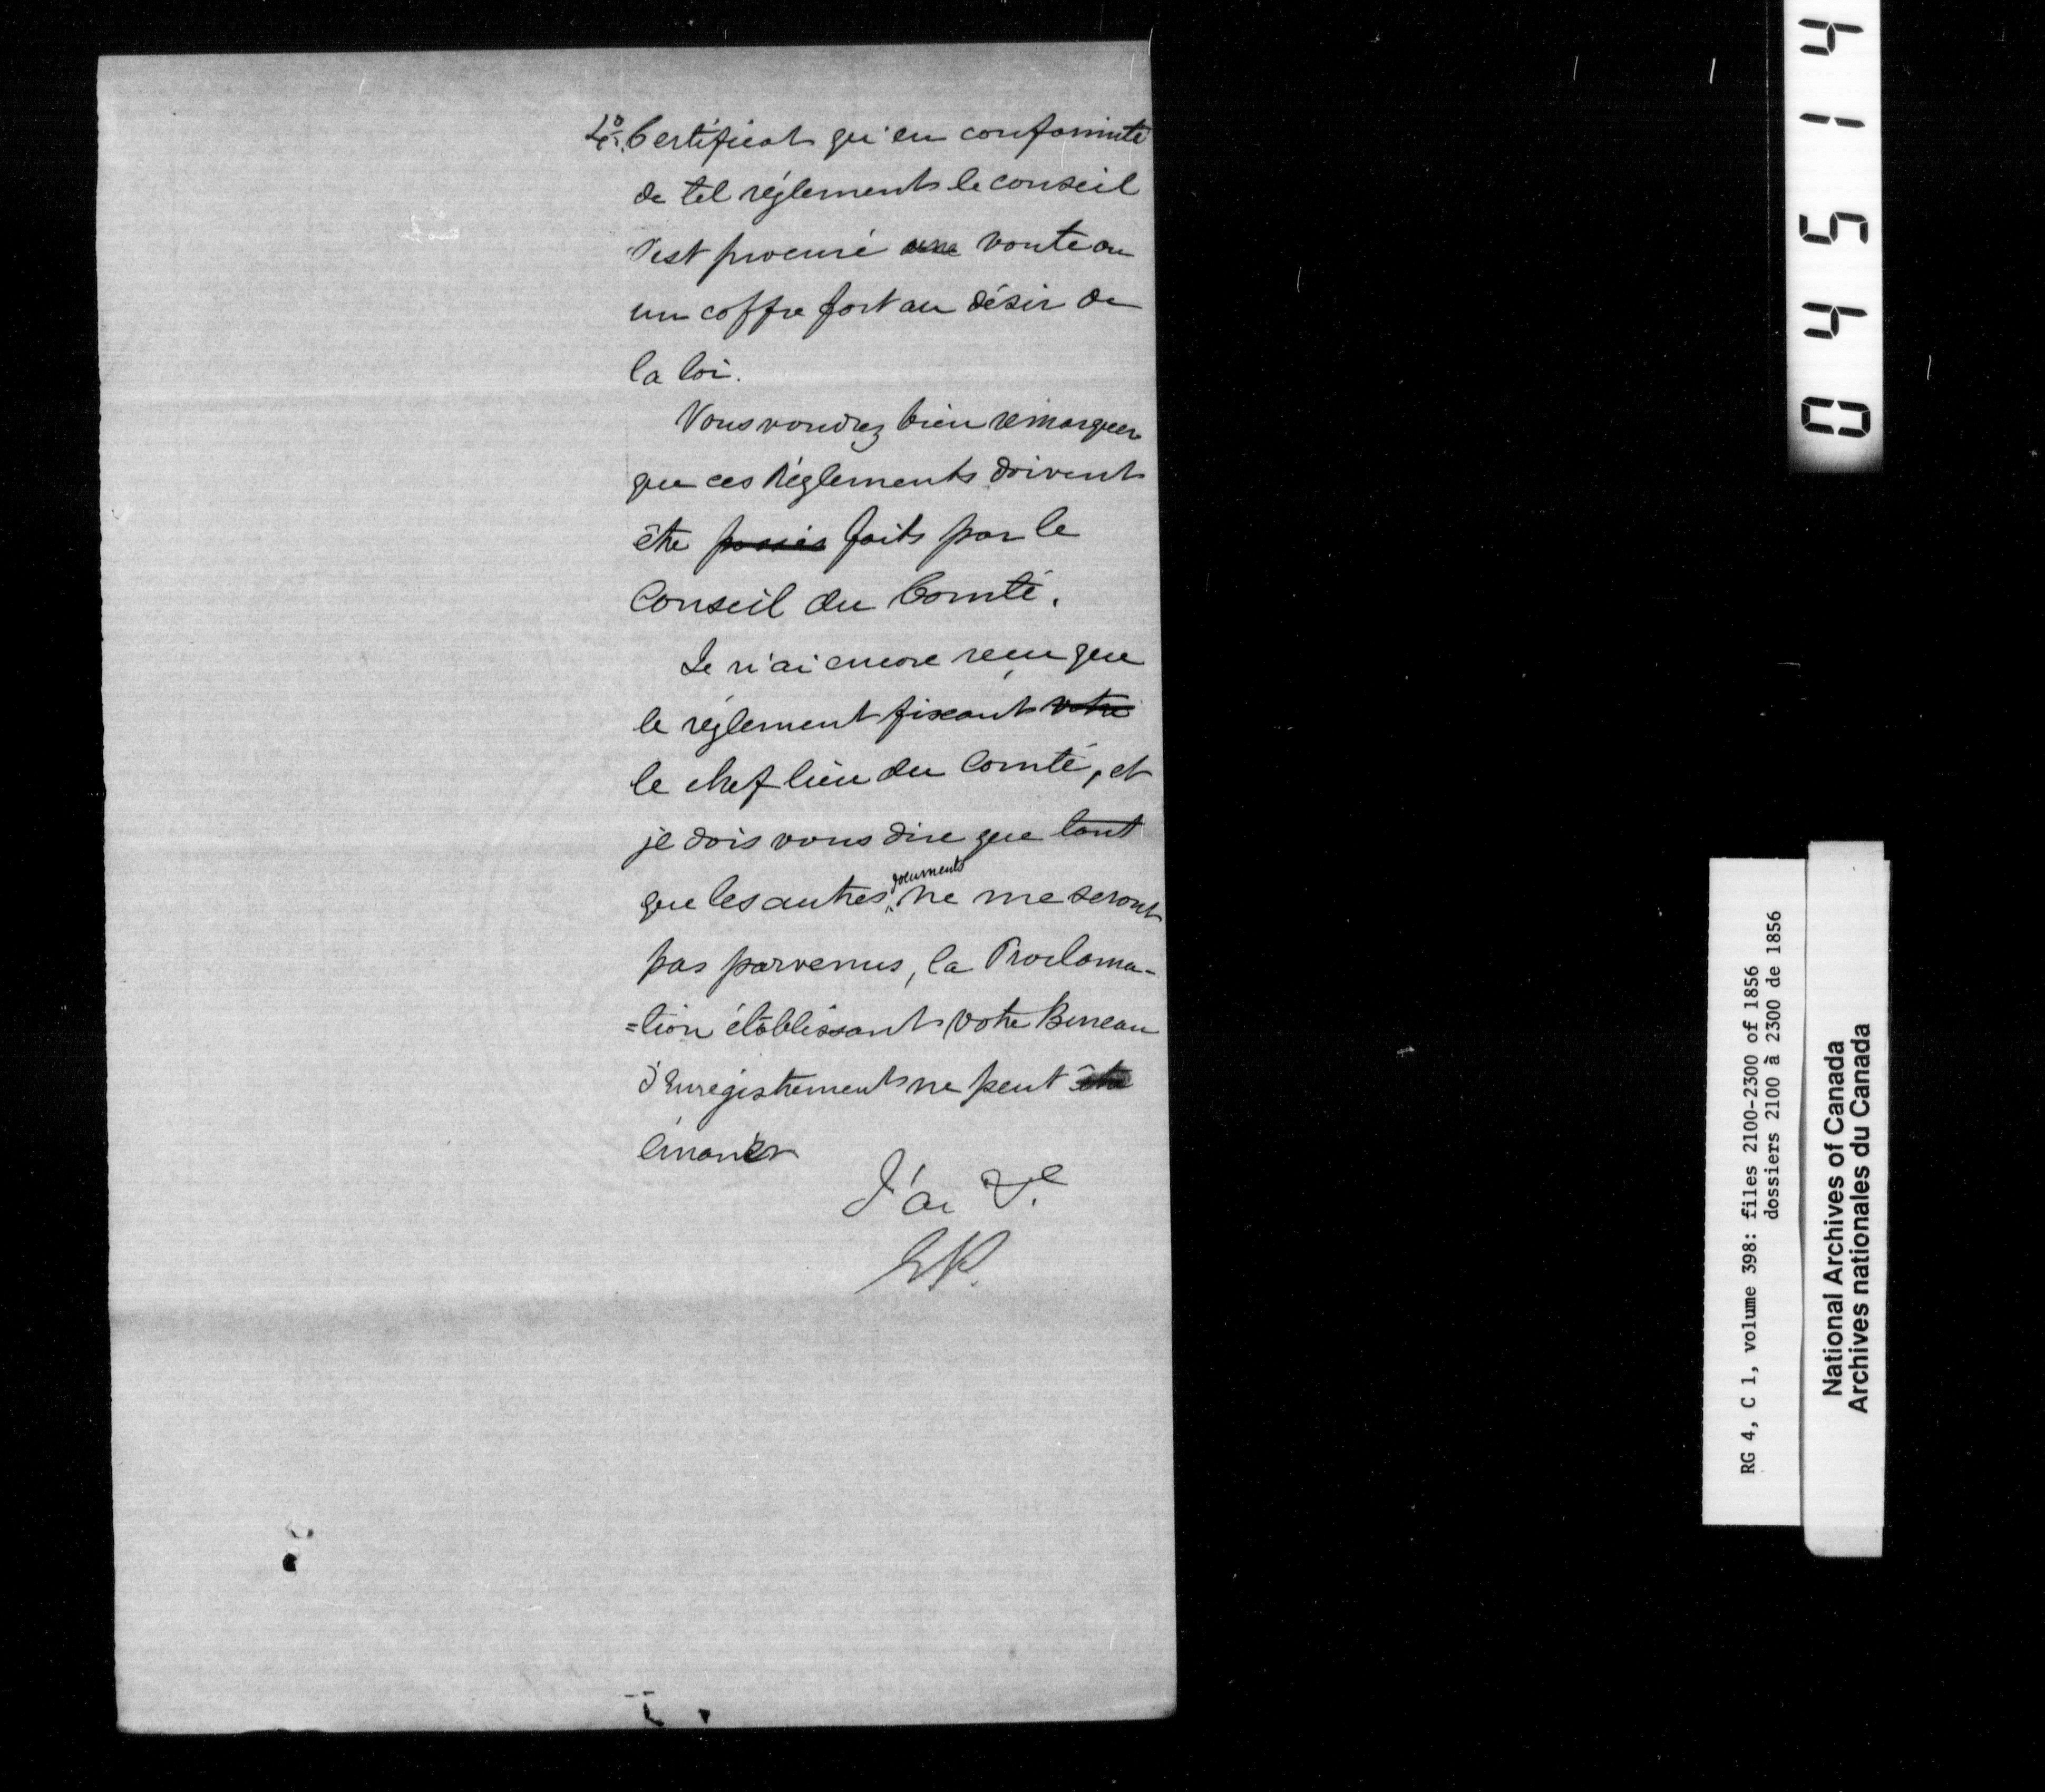 4o. Certificat qu'en conformité
de tel réglements le conseil
s'est procuré une voute ou
un coffre fort au désir de
la loi.
Vous voudrez bien remarquer
que ces Réglements doivent
être passés faits par le
Conseil du Comté.
Je n'ai encore reçu que
le réglement fixant votre
le chef lieu du Comté, et
je dois vous dire que tant
que les autres documents ne me seront
pas parvenus, la Proclama-
=tion établissant votre Bureau
d'Enregistrement ne peut être
émaner
J'ai &c.
0 4 5 1 4
RG 4, C 1, volume 398: files 2100-2300 of 1856
dossiers 2100 à 2300 de 1856
National Archives of Canada
Archives nationales du Canada